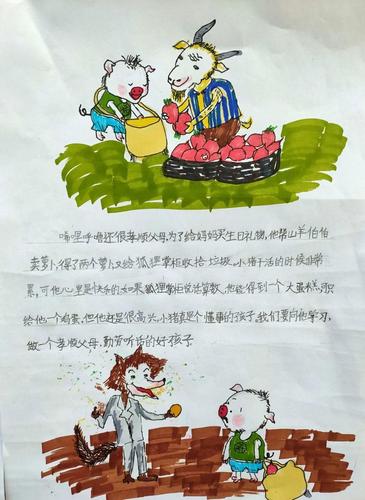 唏哩呼噜还很孝顺父母,为了给妈妈买生日礼物,他帮山羊伯伯
卖萝卜,得了两个萝卜又给狐狸掌柜收拾垃圾。小猪干活的时候非常
累,可他心里是快乐的如果狐狸掌柜说话算数,他能得到一个大蛋糕,
给他一个鸡蛋,但他还是很高兴,小猪真是个懂事的孩子,我们要向他学习,
做一个孝顺父母,勤劳听话的好孩子